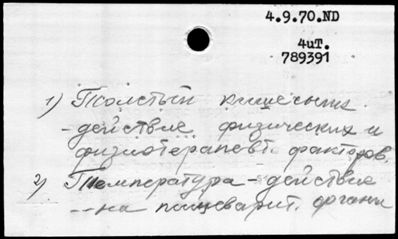 4.9.70.ND
4иT.
789391
1) Толстый кишечник
- действие физических и
физиотерапевт. факторов
2) Температура - действие
-- на пищеварит. органы